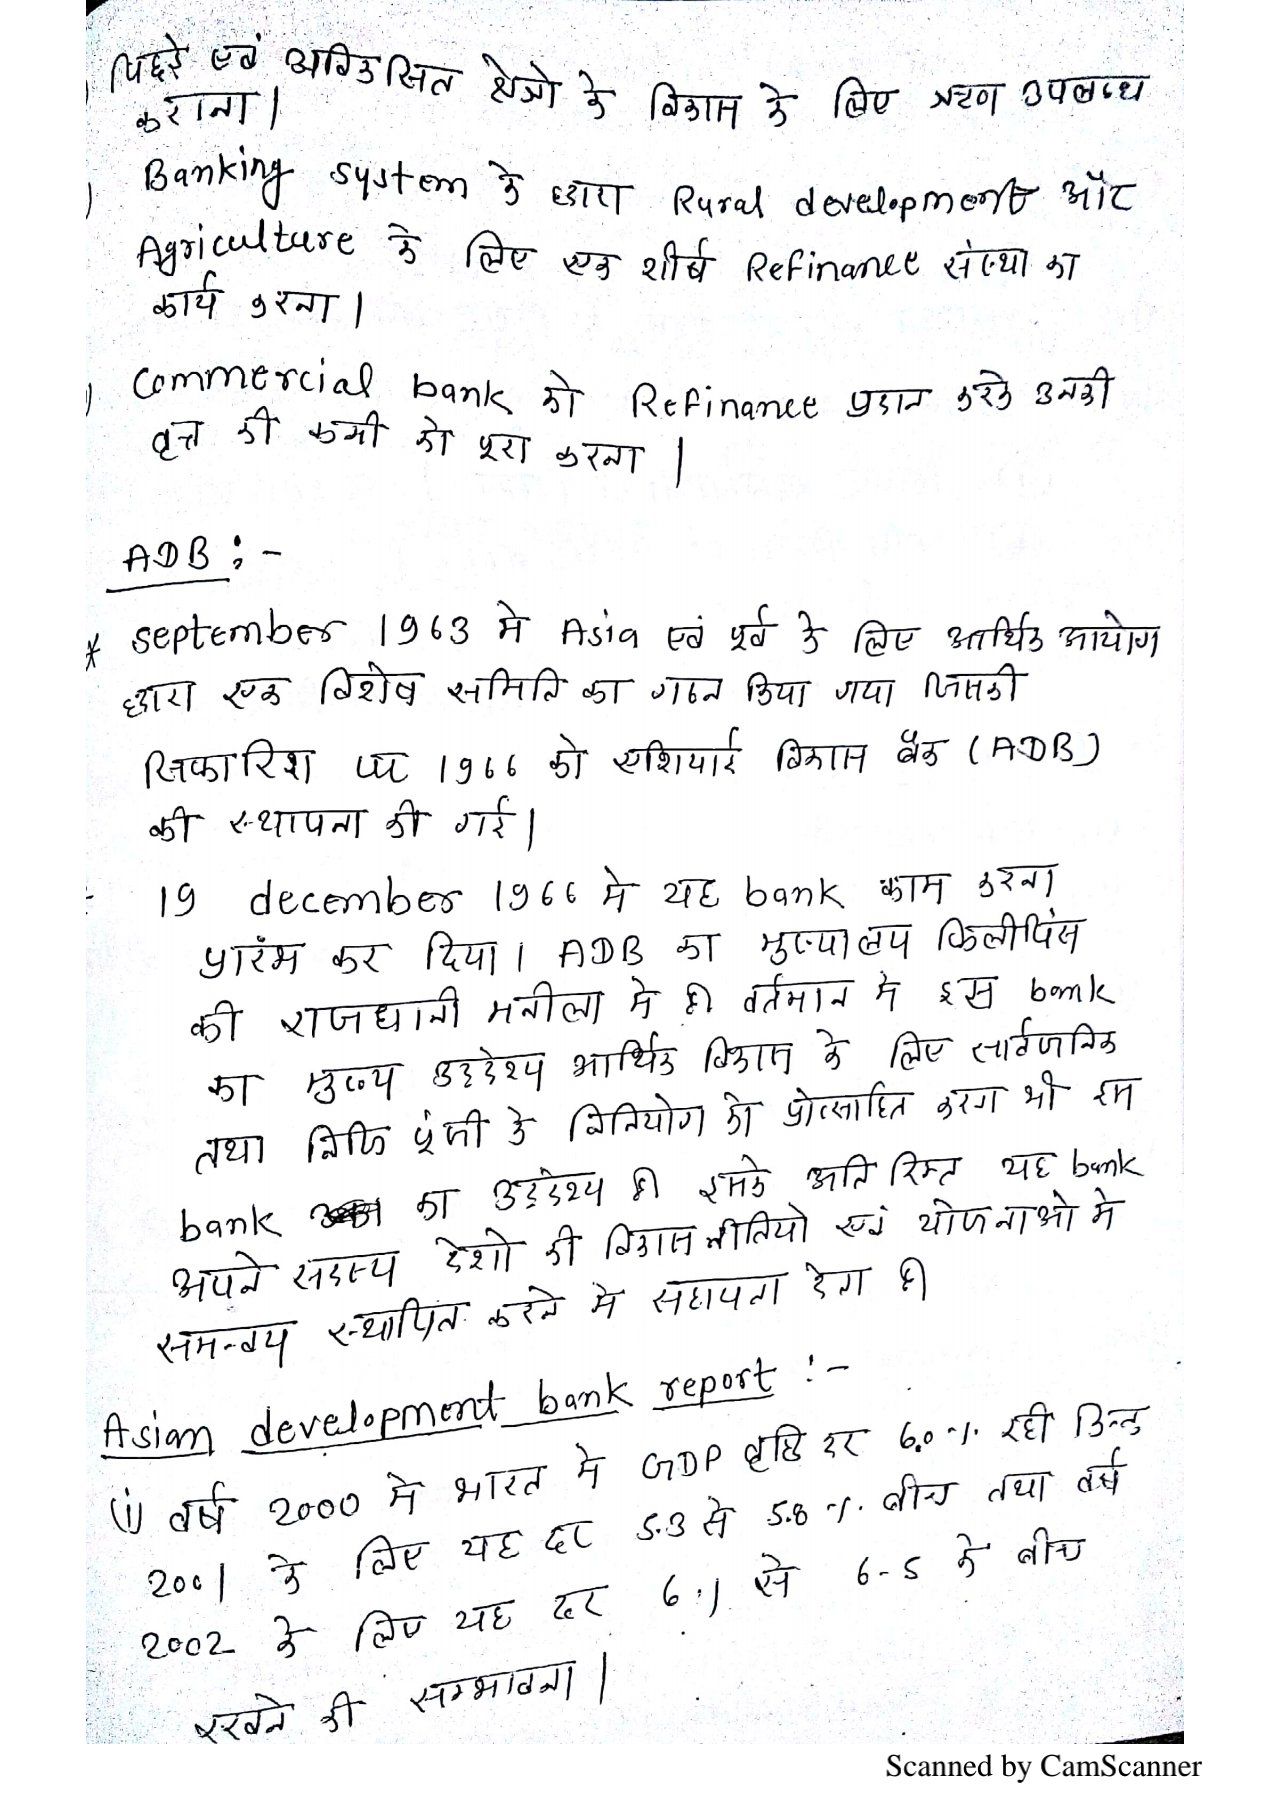 पिछड़े एवं अविकसित क्षेत्रो के विकास के लिए ऋण उपलब्ध
कराना।
Banking system के द्वारा Rural development और
Agriculture के लिए एक शीर्ष Refinance संस्था का
कार्य करना।
Commercial bank को Refinance प्रदान करके उनकी
वृत्त की कमी को पूरा करना।
ADB :-
* september 1963 मे Asia एवं पूर्व के लिए आर्थिक आयोग
द्वारा एक विशेष समिति का गठन किया गया जिसकी
सिफारिश पर 1966 को एशियाई विकास बैंक (ADB)
की स्थापना की गई।
19 december 1966 मे यह bank काम करना
प्रारंम कर दिया। ADB का मुख्यालय फिलीपिंस
की राजधानी मनीला मे है। वर्तमान मे इस bank
का मुख्य उद्देश्य आर्थिक विकास के लिए सार्वजनिक
तथा निजि पूंजी के विनियोग को प्रोत्साहित करना भी इस
bank का उद्देश्य है। इसके अतिरिक्त यह bank
अपने सदस्य देशो की विकास नीतियो एवं योजनाओ मे
समन्वय स्थापित करने मे सहायता देता है।
Asian development bank report :-
(i) वर्ष 2000 मे भारत मे GDP वृद्धि दर 6.0% रही किन्तु
2001 के लिए यह दर 5.3 से 5.8% बीच तथा वर्ष
2002 के लिए यह दर 6% से 6-5 के बीच
रखने की सम्भावना।
Scanned by CamScanner